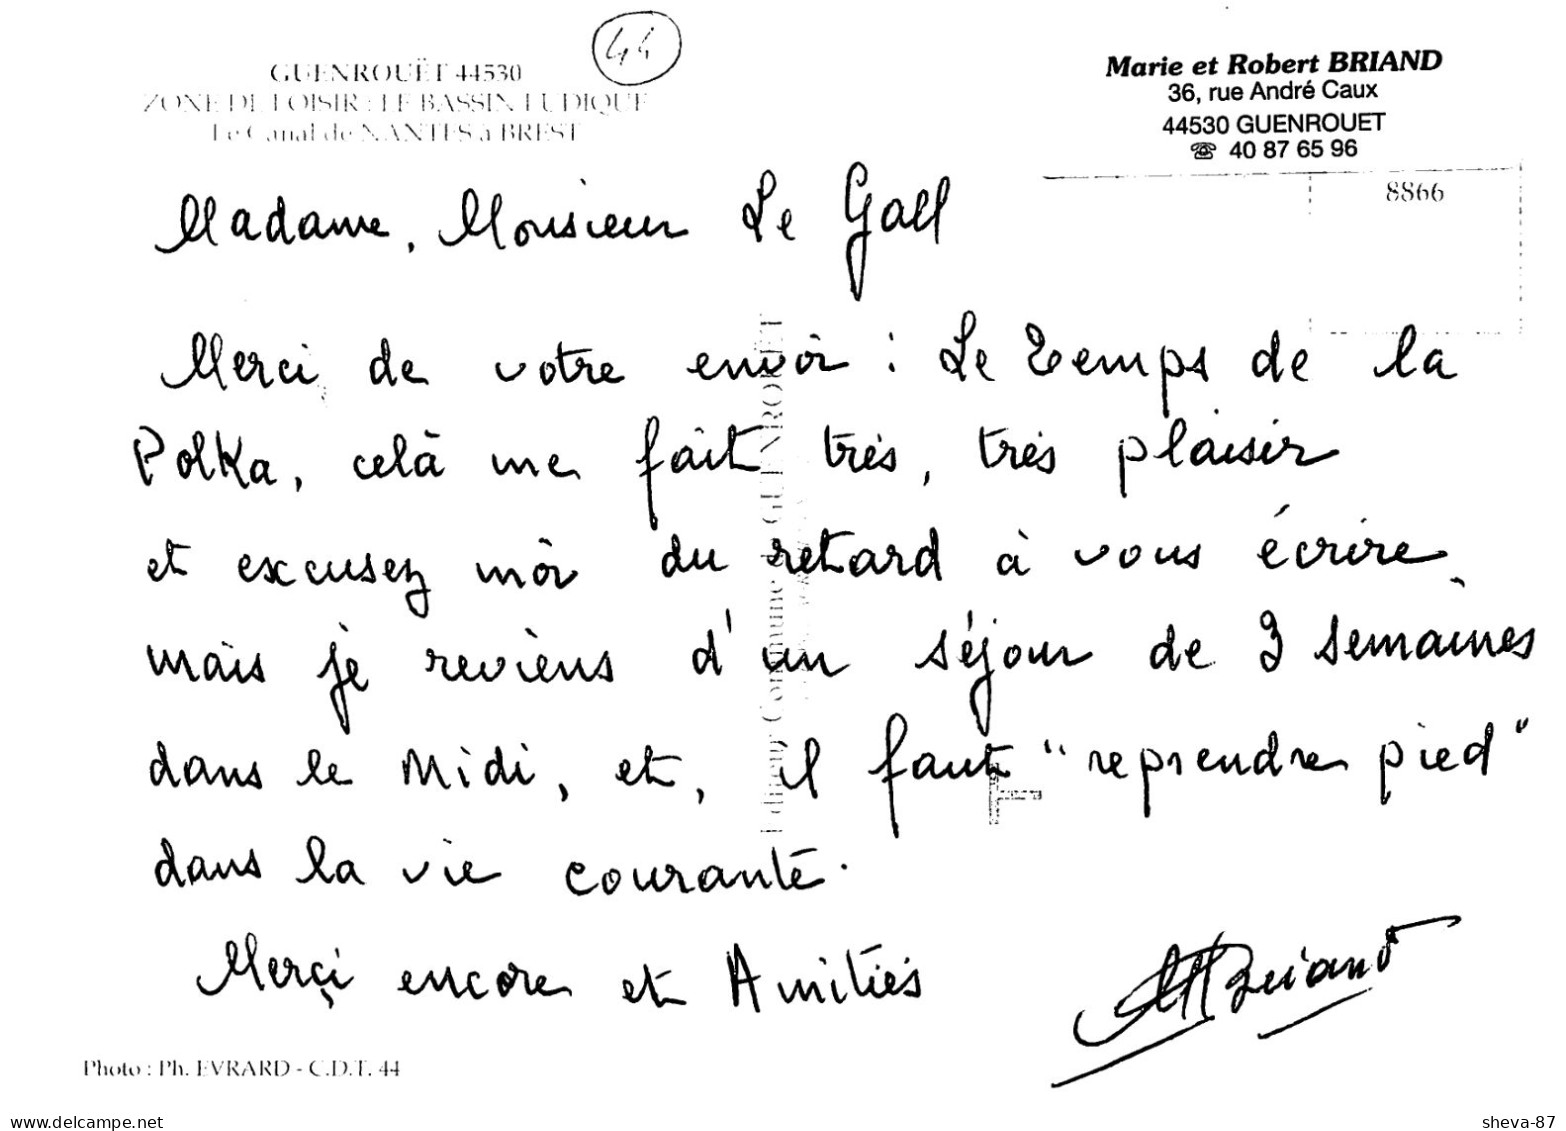 44
GUENROUËT 44530
ZONE DE LOISIR : LE BASSIN LUDIQUE
Le Canal de NANTES à BREST
Marie et Robert BRIAND
36, rue André Caux
44530 GUENROUET
☎ 40 87 65 96
8866
Madame, Monsieur Le Gall
Merci de votre envoi : Le temps de la
Polka, celà me fait très, très plaisir
et excusez moi du retard à vous écrire,
mais je reviens d'un séjour de 3 semaines
dans le Midi, et, il faut "reprendre pied"
dans la vie courante.
Merci encore et Amitiés
MBriand
Editeur Commune de GUENROUËT
Photo : Ph. EVRARD - C.D.T. 44
www.delcampe.net
sheva-87